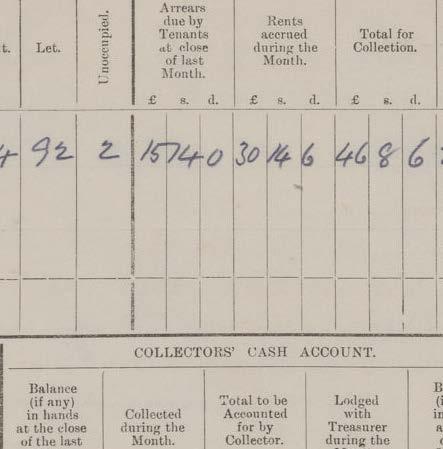 t. Let. Unoccupied. Arrears due by Tenants at close of last Month. Rents accrued during the Month. Total for Collection.
£ s. d. £ s. d. £ s. d.
4 92 2 15 14 0 30 14 6 46 8 6
COLLECTORS' CASH ACCOUNT.
Balance
(if any)
in hands
at the close
of the last
Collected
during the
Month.
Total to be
Accounted
for by
Collector.
Lodged
with
Treasurer
during the